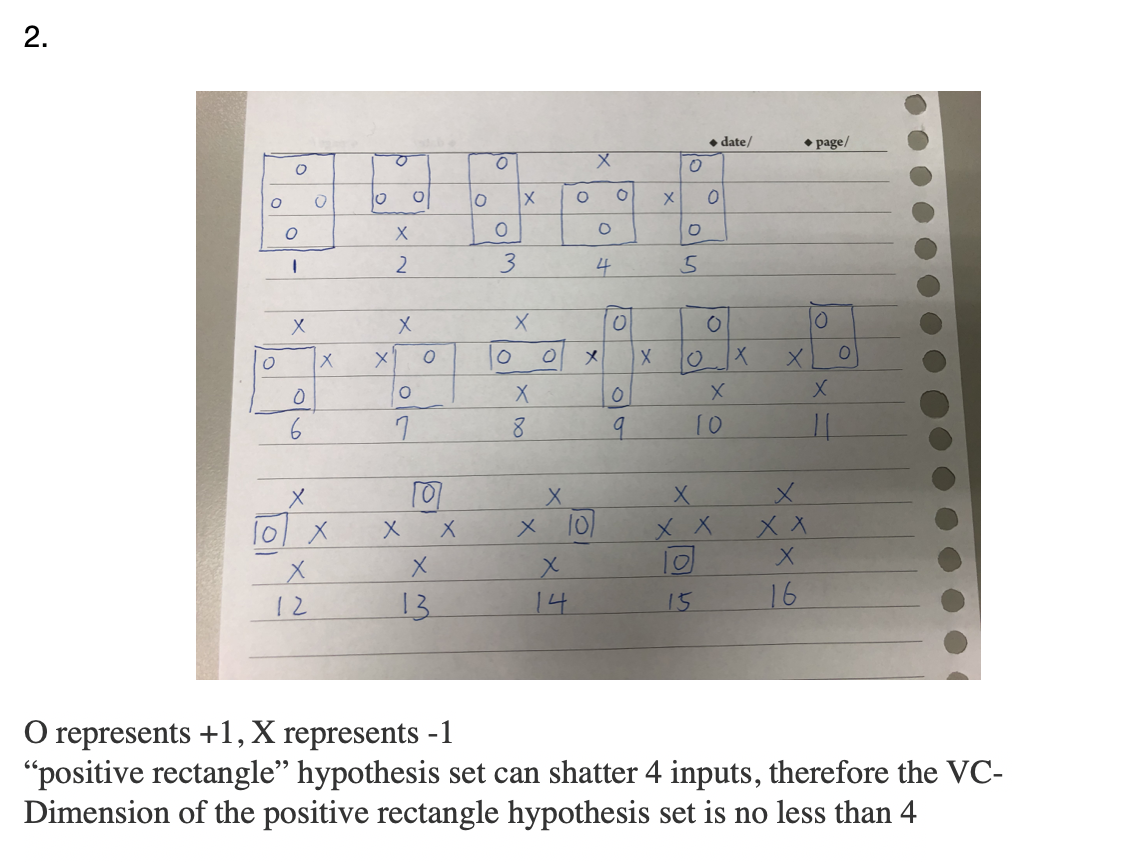 2.
◆ date/ ◆ page/
O O O X O
O O O O O O X O O X O
O X O O O
1 2 3 4 5
X X X O O O
O X X O O O X X O X X O
O O X O X X
6 7 8 9 10 11
X O X X X
O X X X X O X X X X
X X X O X
12 13 14 15 16
O represents +1, X represents -1
“positive rectangle” hypothesis set can shatter 4 inputs, therefore the VC-
Dimension of the positive rectangle hypothesis set is no less than 4